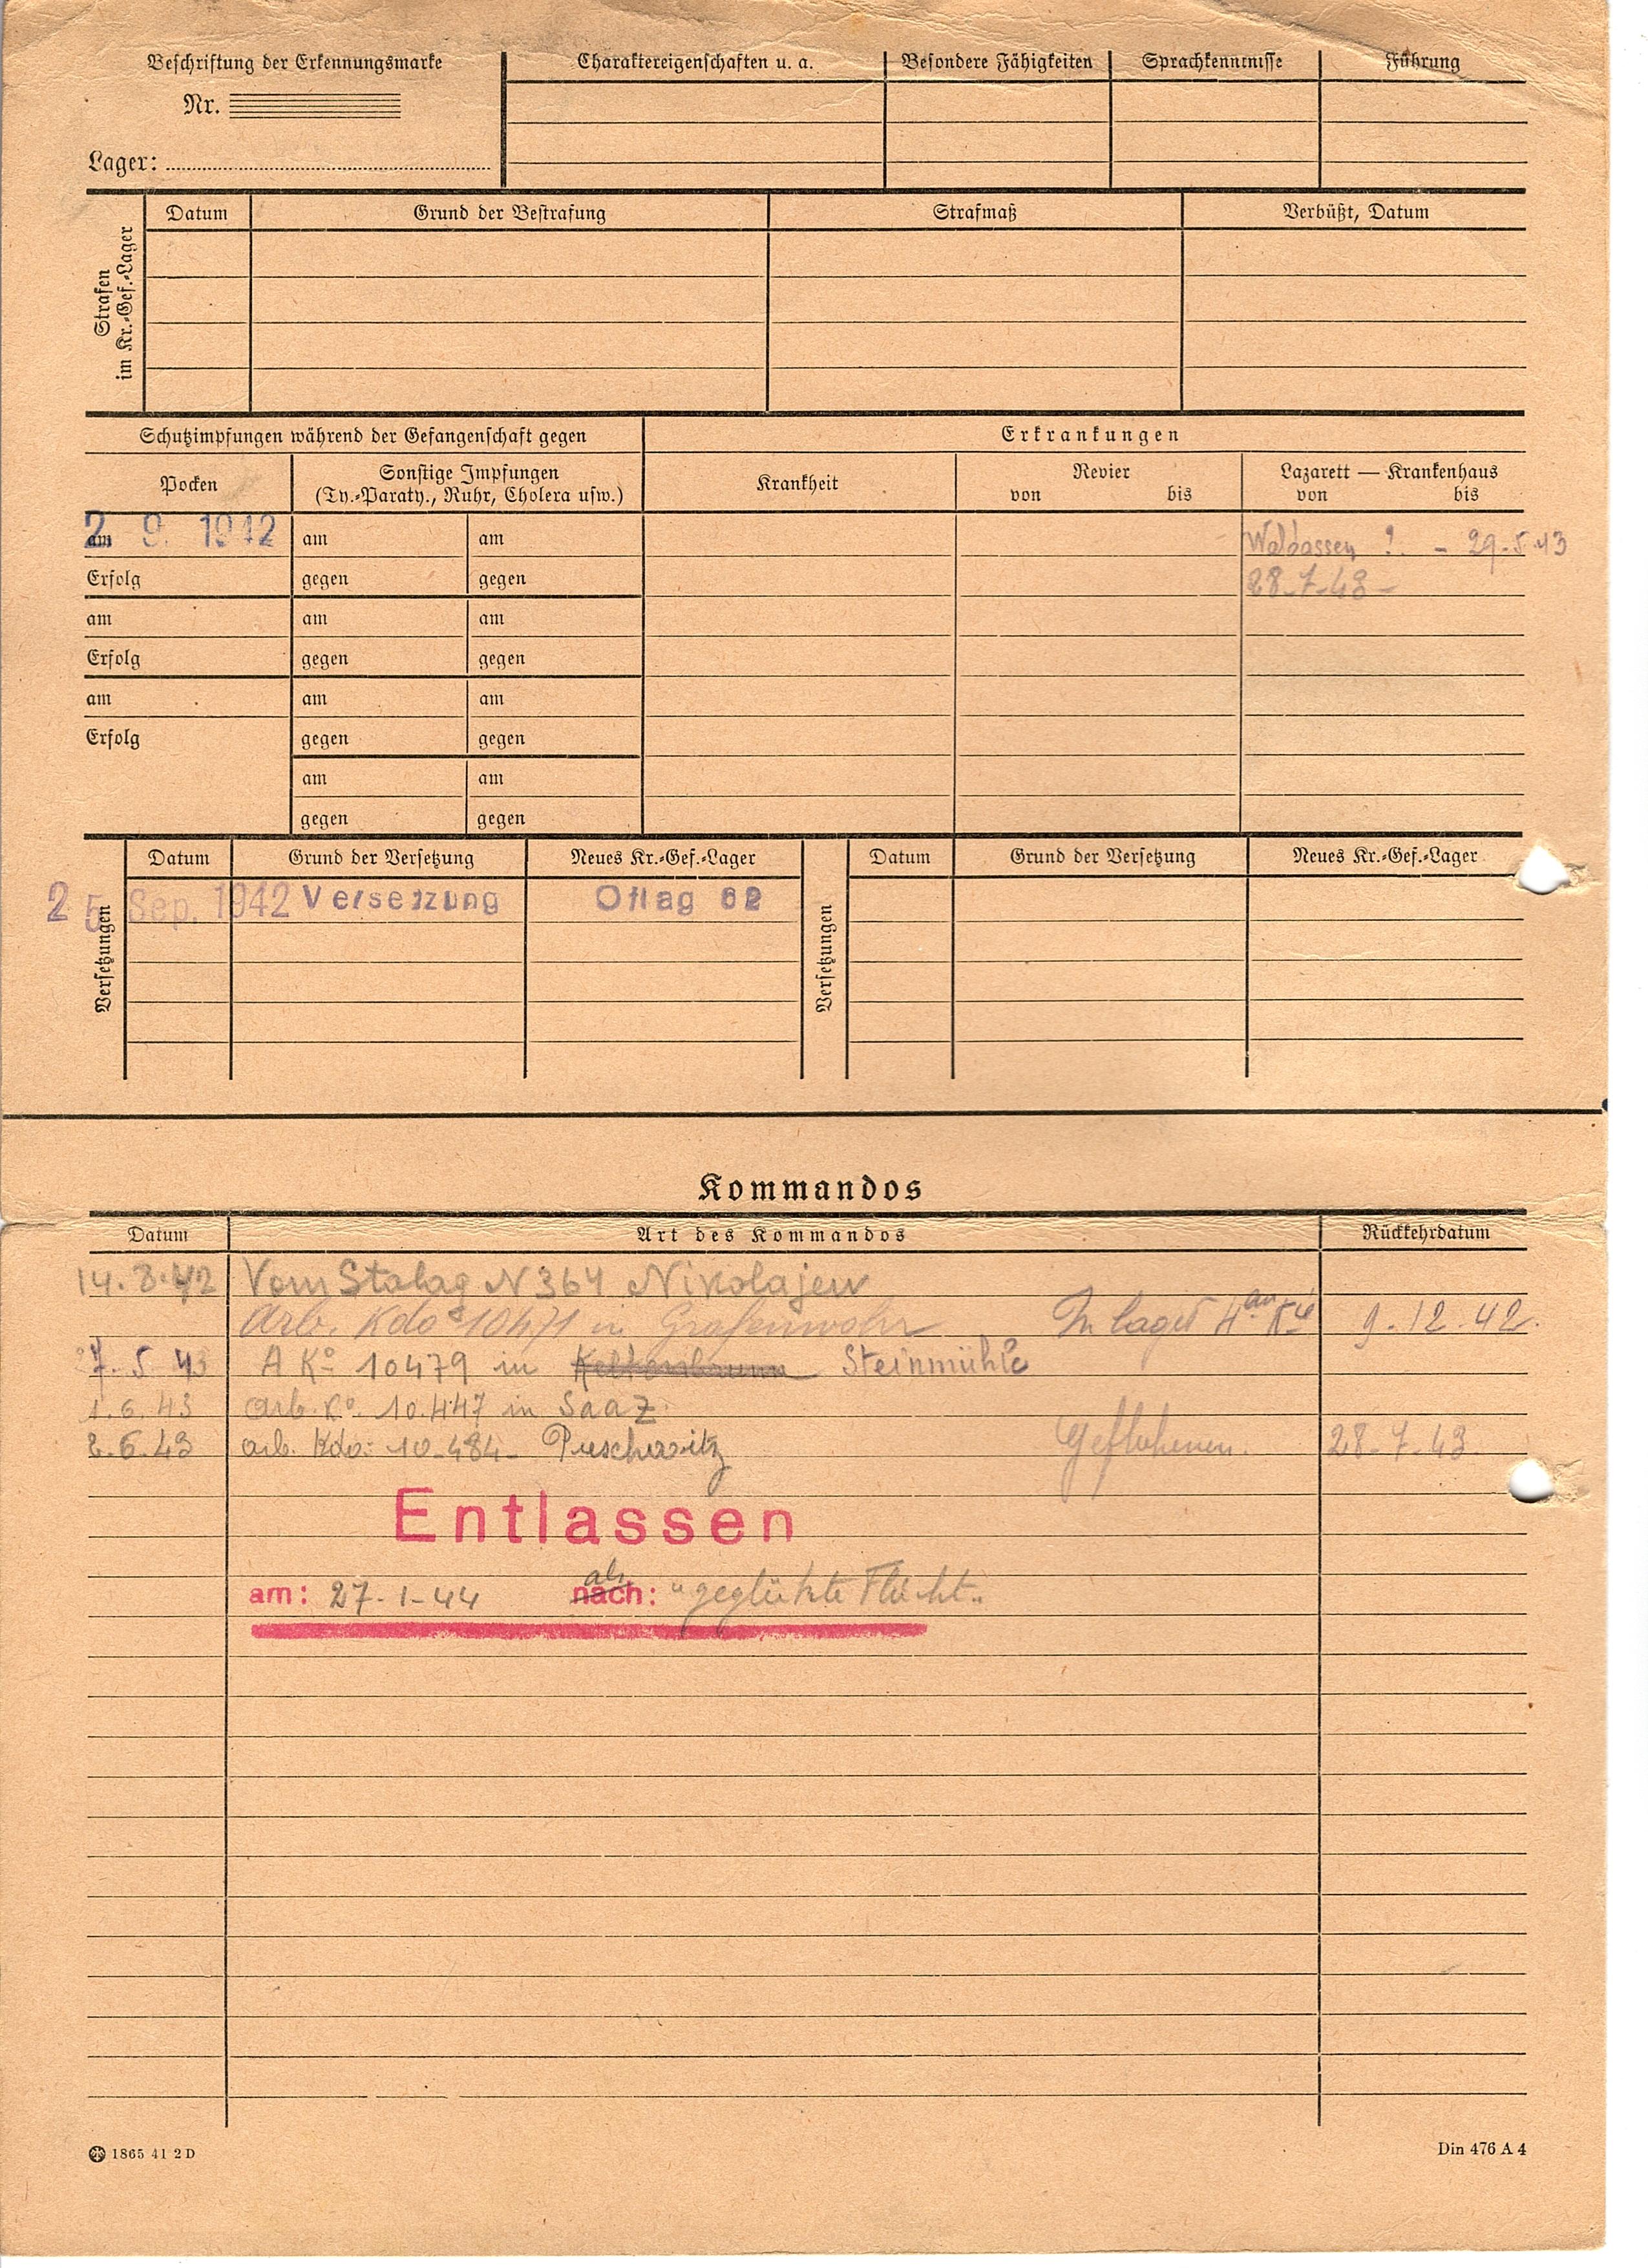 Beschriftung der Erkennungsmarke
Nr.
Lager:
Charaktereigenschaften u. a.
Besondere Fähigkeiten
Sprachkenntnisse
Führung
Strafen
im Kr.-Gef.-Lager
Datum
Grund der Bestrafung
Strafmaß
Verbüßt, Datum
Schutzimpfungen während der Gefangenschaft gegen
Erkrankungen
Pocken
Sonstige Impfungen
(Ty.-Paraty., Ruhr, Cholera usw.)
Krankheit
Revier
von bis
Lazarett — Krankenhaus
von bis
am 2 9. 1942 am am
Waldassen ? - 29.5.43
Erfolg gegen gegen
28-7-43-
am am am
Erfolg gegen gegen
am am am
Erfolg gegen gegen
am am
gegen gegen
Versetzungen
Datum Grund der Versetzung Neues Kr.-Gef.-Lager
25 Sep. 1942 Versetzung Oflag 62
Versetzungen
Datum Grund der Versetzung Neues Kr.-Gef.-Lager
Kommandos
Datum Art des Kommandos Rückkehrdatum
14.8.42 Vom Stalag N 364 Nikolajew
Arb. Kdo 10471 in Grafenwohr In lager 9.12.42.
7.5.43 A Ko 10479 in Steinmühle
1.6.43 arb. Ko. 10.447 in Saaz.
2.6.43 arb. Kdo: 10-484- Puschwitz Geflohenen. 28-7-43
Entlassen
am: 27-1-44 nach: als "geglükte Flucht"
1865 41 2 D
Din 476 A 4